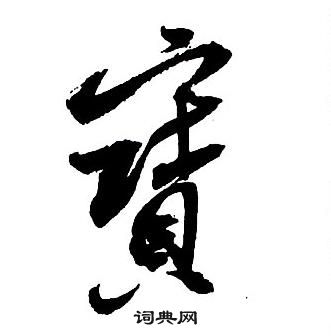 寶
词典网